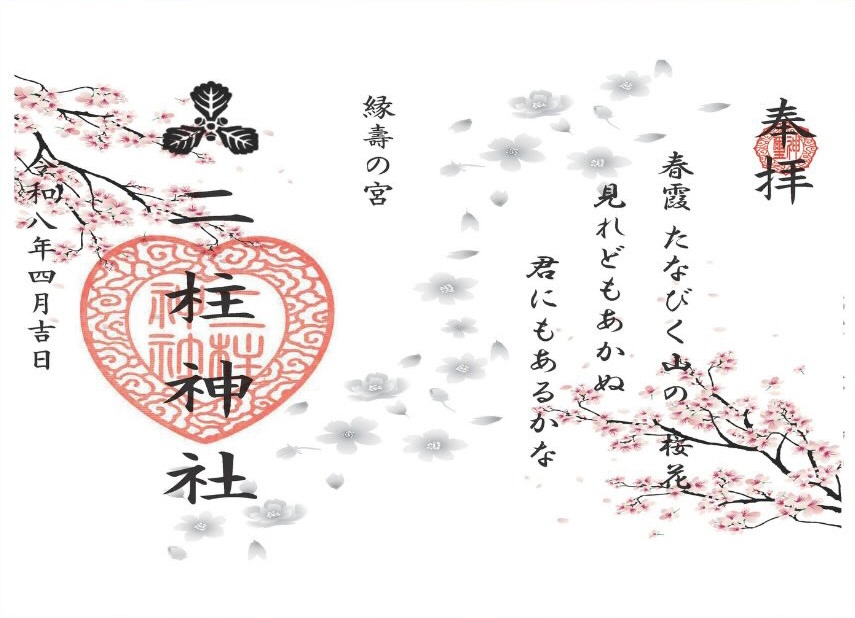 奉拝
春霞 たなびく山の 桜花
見れどもあかぬ
君にもあるかな
縁壽の宮
二柱神社
二柱神社
令和八年四月吉日